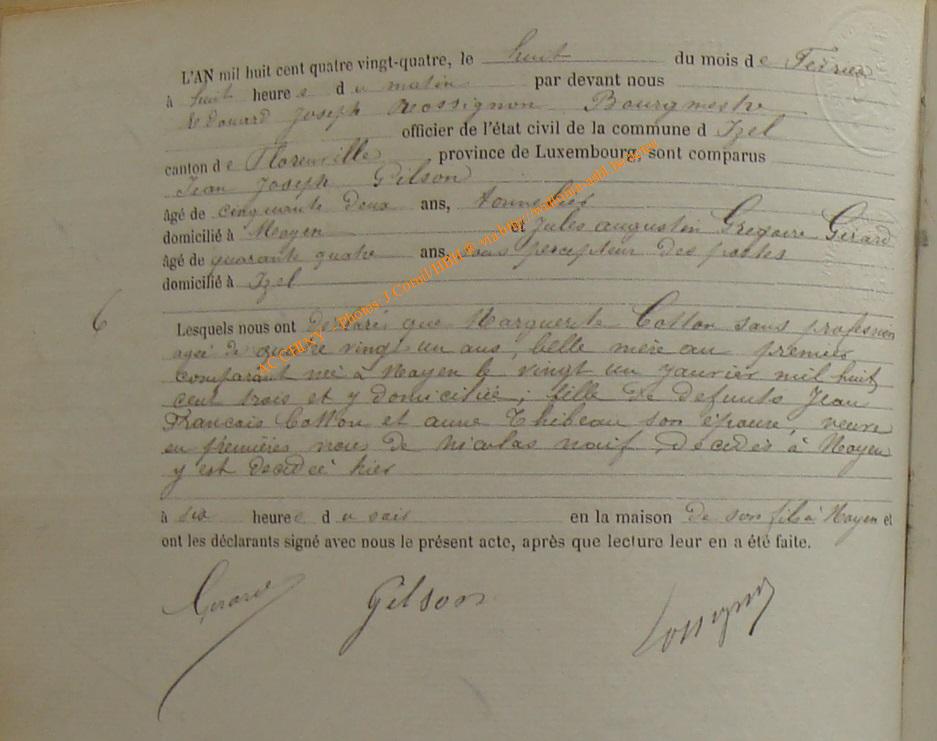 L'AN mil huit cent quatre vingt-quatre, le huit du mois de Février
à huit heures du matin par devant nous
Edouard Joseph Rossignon Bourgmestre
officier de l'état civil de la commune d Izel
canton de Florenville province de Luxembourg, sont comparus
Jean Joseph Gilson
âgé de cinquante deux ans, tonnelier
domicilié à Moyen et Jules augustin Gregoire Girard
âgé de quarante quatre ans, sous percepteur des postes
domicilié à Izel
6
Lesquels nous ont déclaré que Marguerite Cotton sans profession
agée de quatre vingt un ans, belle mère au premier
comparant née à Moyen le vingt un janvier mil huit
cent trois et y domiciliée, fille de defunts Jean
Francois Cotton et anne Thibeau son épouse, veuve
en premières noces de nicolas noif, decédés à Moyen
y est decedée hier
à six heures du soir en la maison de son fils à Moyen et
ont les déclarants signé avec nous le présent acte, après que lecture leur en a été faite.
Girard Gilson Rossignon
ACCHLNY - Photos J Cornil HBH ® via http://watermark-add.